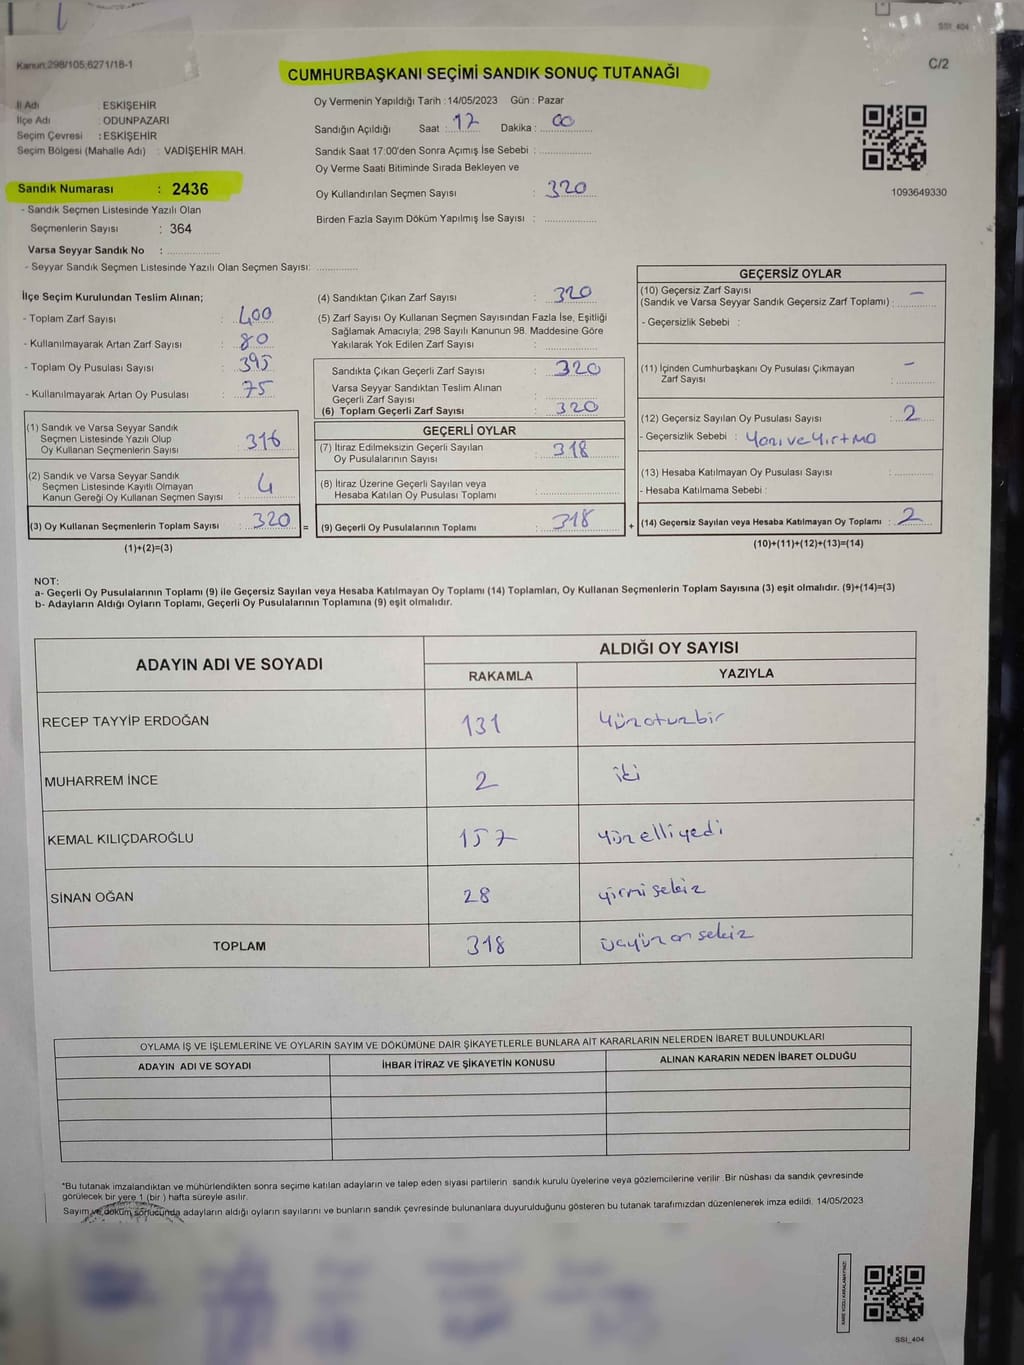 SSI_404
Kanun:298/105,6271/18-1
C/2
CUMHURBAŞKANI SEÇİMİ SANDIK SONUÇ TUTANAĞI
İl Adı : ESKİŞEHİR
İlçe Adı : ODUNPAZARI
Seçim Çevresi : ESKİŞEHİR
Seçim Bölgesi (Mahalle Adı) : VADİŞEHİR MAH.
Sandık Numarası : 2436
- Sandık Seçmen Listesinde Yazılı Olan
Seçmenlerin Sayısı : 364
Varsa Seyyar Sandık No :
- Seyyar Sandık Seçmen Listesinde Yazılı Olan Seçmen Sayısı:
Oy Vermenin Yapıldığı Tarih : 14/05/2023 Gün : Pazar
Sandığın Açıldığı Saat : 17 Dakika : 00
Sandık Saat 17:00'den Sonra Açımış İse Sebebi :
Oy Verme Saati Bitiminde Sırada Bekleyen ve
Oy Kullandırılan Seçmen Sayısı : 320
Birden Fazla Sayım Döküm Yapılmış İse Sayısı :
1093649330
İlçe Seçim Kurulundan Teslim Alınan;
- Toplam Zarf Sayısı : 400
- Kullanılmayarak Artan Zarf Sayısı : 80
- Toplam Oy Pusulası Sayısı : 395
- Kullanılmayarak Artan Oy Pusulası : 75
(1) Sandık ve Varsa Seyyar Sandık
Seçmen Listesinde Yazılı Olup
Oy Kullanan Seçmenlerin Sayısı : 316
(2) Sandık ve Varsa Seyyar Sandık
Seçmen Listesinde Kayıtlı Olmayan
Kanun Gereği Oy Kullanan Seçmen Sayısı : 4
(3) Oy Kullanan Seçmenlerin Toplam Sayısı : 320
(1)+(2)=(3)
(4) Sandıktan Çıkan Zarf Sayısı : 320
(5) Zarf Sayısı Oy Kullanan Seçmen Sayısından Fazla İse, Eşitliği
Sağlamak Amacıyla; 298 Sayılı Kanunun 98. Maddesine Göre
Yakılarak Yok Edilen Zarf Sayısı :
Sandıkta Çıkan Geçerli Zarf Sayısı : 320
Varsa Seyyar Sandıktan Teslim Alınan
Geçerli Zarf Sayısı :
(6) Toplam Geçerli Zarf Sayısı : 320
GEÇERLİ OYLAR
(7) İtiraz Edilmeksizin Geçerli Sayılan
Oy Pusulalarının Sayısı : 318
(8) İtiraz Üzerine Geçerli Sayılan veya
Hesaba Katılan Oy Pusulası Toplamı :
= (9) Geçerli Oy Pusulalarının Toplamı : 318
GEÇERSİZ OYLAR
(10) Geçersiz Zarf Sayısı
(Sandık ve Varsa Seyyar Sandık Geçersiz Zarf Toplamı) : -
- Geçersizlik Sebebi :
(11) İçinden Cumhurbaşkanı Oy Pusulası Çıkmayan
Zarf Sayısı : -
(12) Geçersiz Sayılan Oy Pusulası Sayısı : 2
- Geçersizlik Sebebi : Yazı ve Yırtma
(13) Hesaba Katılmayan Oy Pusulası Sayısı :
- Hesaba Katılmama Sebebi :
+ (14) Geçersiz Sayılan veya Hesaba Katılmayan Oy Toplamı : 2
(10)+(11)+(12)+(13)=(14)
NOT:
a- Geçerli Oy Pusulalarının Toplamı (9) ile Geçersiz Sayılan veya Hesaba Katılmayan Oy Toplamı (14) Toplamları, Oy Kullanan Seçmenlerin Toplam Sayısına (3) eşit olmalıdır. (9)+(14)=(3)
b- Adayların Aldığı Oyların Toplamı, Geçerli Oy Pusulalarının Toplamına (9) eşit olmalıdır.
ADAYIN ADI VE SOYADI
ALDIĞI OY SAYISI
RAKAMLA YAZIYLA
RECEP TAYYİP ERDOĞAN 131 Yüzotuzbir
MUHARREM İNCE 2 iki
KEMAL KILIÇDAROĞLU 157 yüzelliyedi
SİNAN OĞAN 28 yirmisekiz
TOPLAM 318 üçyüzonsekiz
OYLAMA İŞ VE İŞLEMLERİNE VE OYLARIN SAYIM VE DÖKÜMÜNE DAİR ŞİKAYETLERLE BUNLARA AİT KARARLARIN NELERDEN İBARET BULUNDUKLARI
ADAYIN ADI VE SOYADI İHBAR İTİRAZ VE ŞİKAYETİN KONUSU ALINAN KARARIN NEDEN İBARET OLDUĞU
*Bu tutanak imzalandıktan ve mühürlendikten sonra seçime katılan adayların ve talep eden siyasi partilerin sandık kurulu üyelerine veya gözlemcilerine verilir. Bir nüshası da sandık çevresinde
görülecek bir yere 1 (bir ) hafta süreyle asılır.
Sayım ve döküm sonucunda adayların aldığı oyların sayılarını ve bunların sandık çevresinde bulunanlara duyurulduğunu gösteren bu tutanak tarafımızdan düzenlenerek imza edildi. 14/05/2023
SSI_404